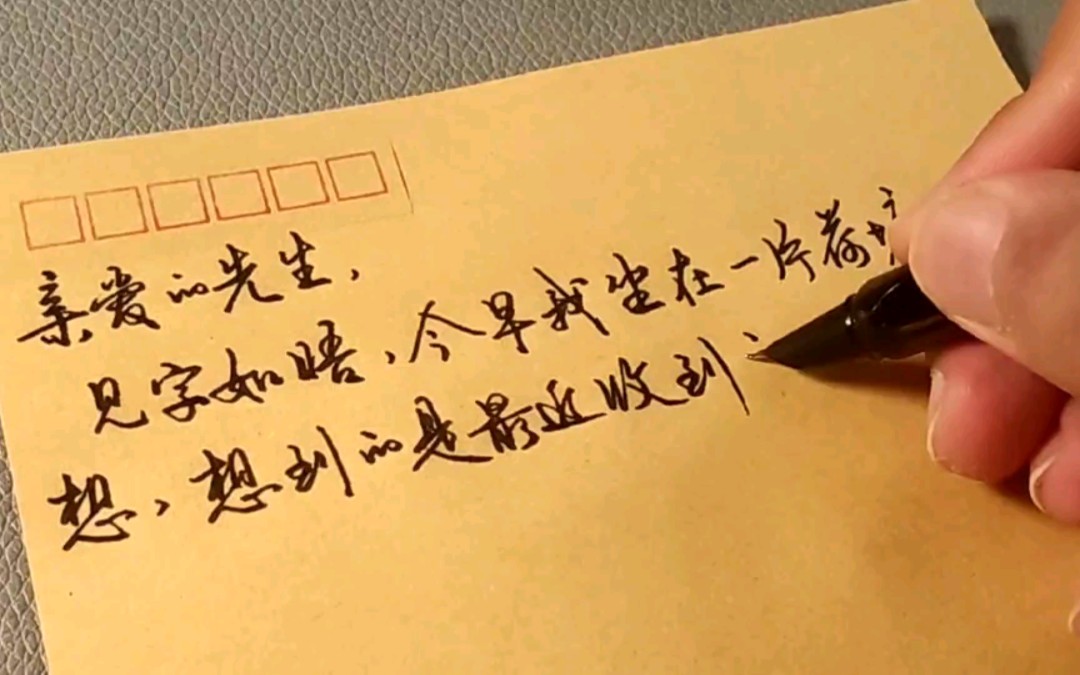 亲爱的先生，
见字如晤，今早我坐在一片荷
想，想到的是最近收到